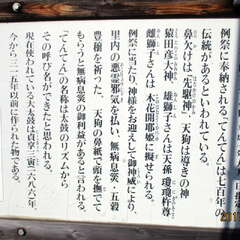 例祭に奉納される「てんでん」は七百年の
伝統があるといわれている。
鼻欠けは「先駆神」、天狗は導きの神
猿田彦大神、雄獅子さんは天孫瓊瓊杵尊
雌獅子さんは木花開耶姫に擬せられる。
例祭に当たり、神様をお迎えして御神威により
里内の悪霊邪気を払い、無病息災・五穀
豊穣を祈りた。天狗の鼻紙で頭を撫でて
もらうと無病息災の御利益があると言われる。
「てんでん」の名称は太鼓のリズムから
その呼び名ができたと思われる。
現在使われている大太鼓は貞享三(寅)一六八六年、
今から三二五年以前に作られた物である。